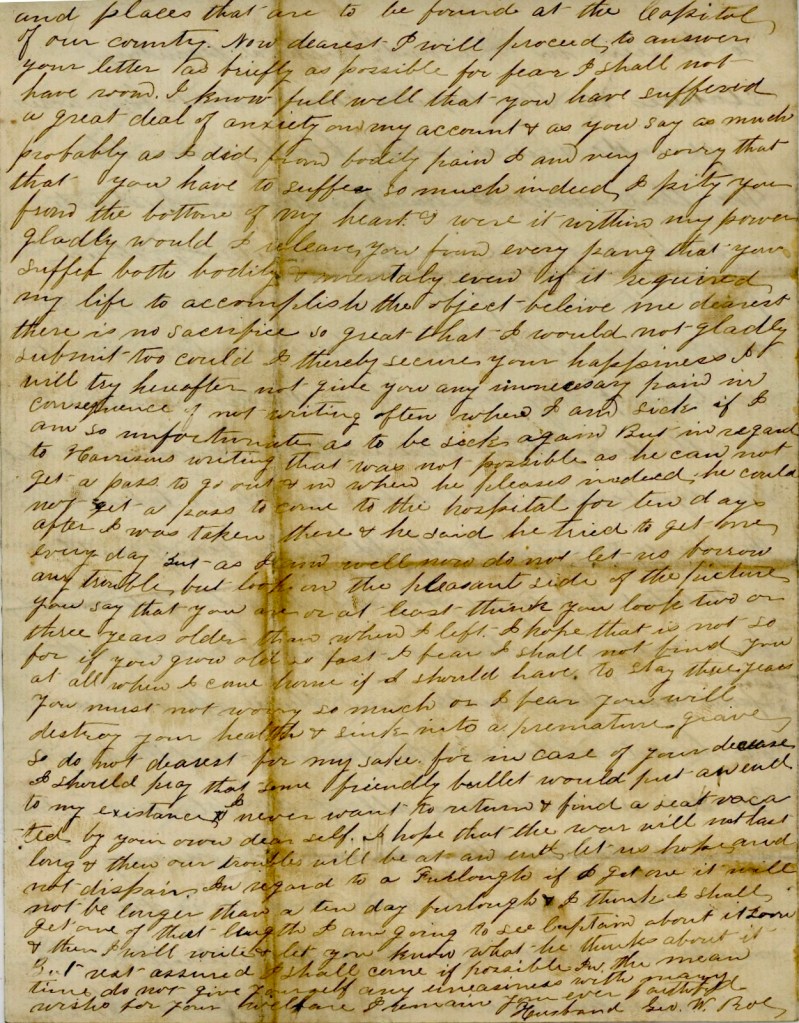 and places that are to be found at the Capitol
of our country. Now dearest I will proceed to answer
your letter as briefly as possible for fear I shall not
have room. I know full well that you have suffered
a great deal of anxiety on my account & as you say as much
probably as I did from bodily pain I am very sorry that
that you have to suffer so much indeed I pity you
from the bottom of my heart & were it within my power
gladly would I releave you from every pang that you
suffer both bodily & mentaly even if it required
my life to accomplish the object beleive me dearest
there is no sacrifice so great that I would not gladly
submit too could I thereby secure your happiness I
will try hereafter not give you any unnecesary pain in
consequence of not writing often when I am sick if I
am so unfortunate as to be sick again But in regard
to Harrisons writing that was not possible as he can not
get a pass to go out & in when he pleases indeed he could
not get a pass to come to the hospital for ten days
after I was taken there & he said he tried to get one
every day but as I am well now do not let us borrow
any trouble but look on the pleasant side of the picture
you say that you are or at least think you look two or
three years older than when I left. I hope that is not so
for if you grow old so fast I fear I shall not find you
at all when I come home if I should have to stay three years
you must not worry so much or I fear you will
destroy your health & sink into a premature grave
so do not dearest for my sake for in case of your decease
I should pray that some friendly bullet would put an end
to my existance I never want to return & find a seat vaca
ted by your own dear self. I hope that the war will not last
long & then our troubles will be at an end let us hope and
not dispair. In regard to a Furlough if I get one it will
not be longer than a ten day furlough & I think I shall
get one of that length I am going to see Captain about it soon
& then I will write & let you know what he thinks about it
But rest assured I shall come if possible In the mean
time do not give yourself any uneasiness with many
wishes for your welfare I remain your ever faithful
Husband Geo. W. Roe